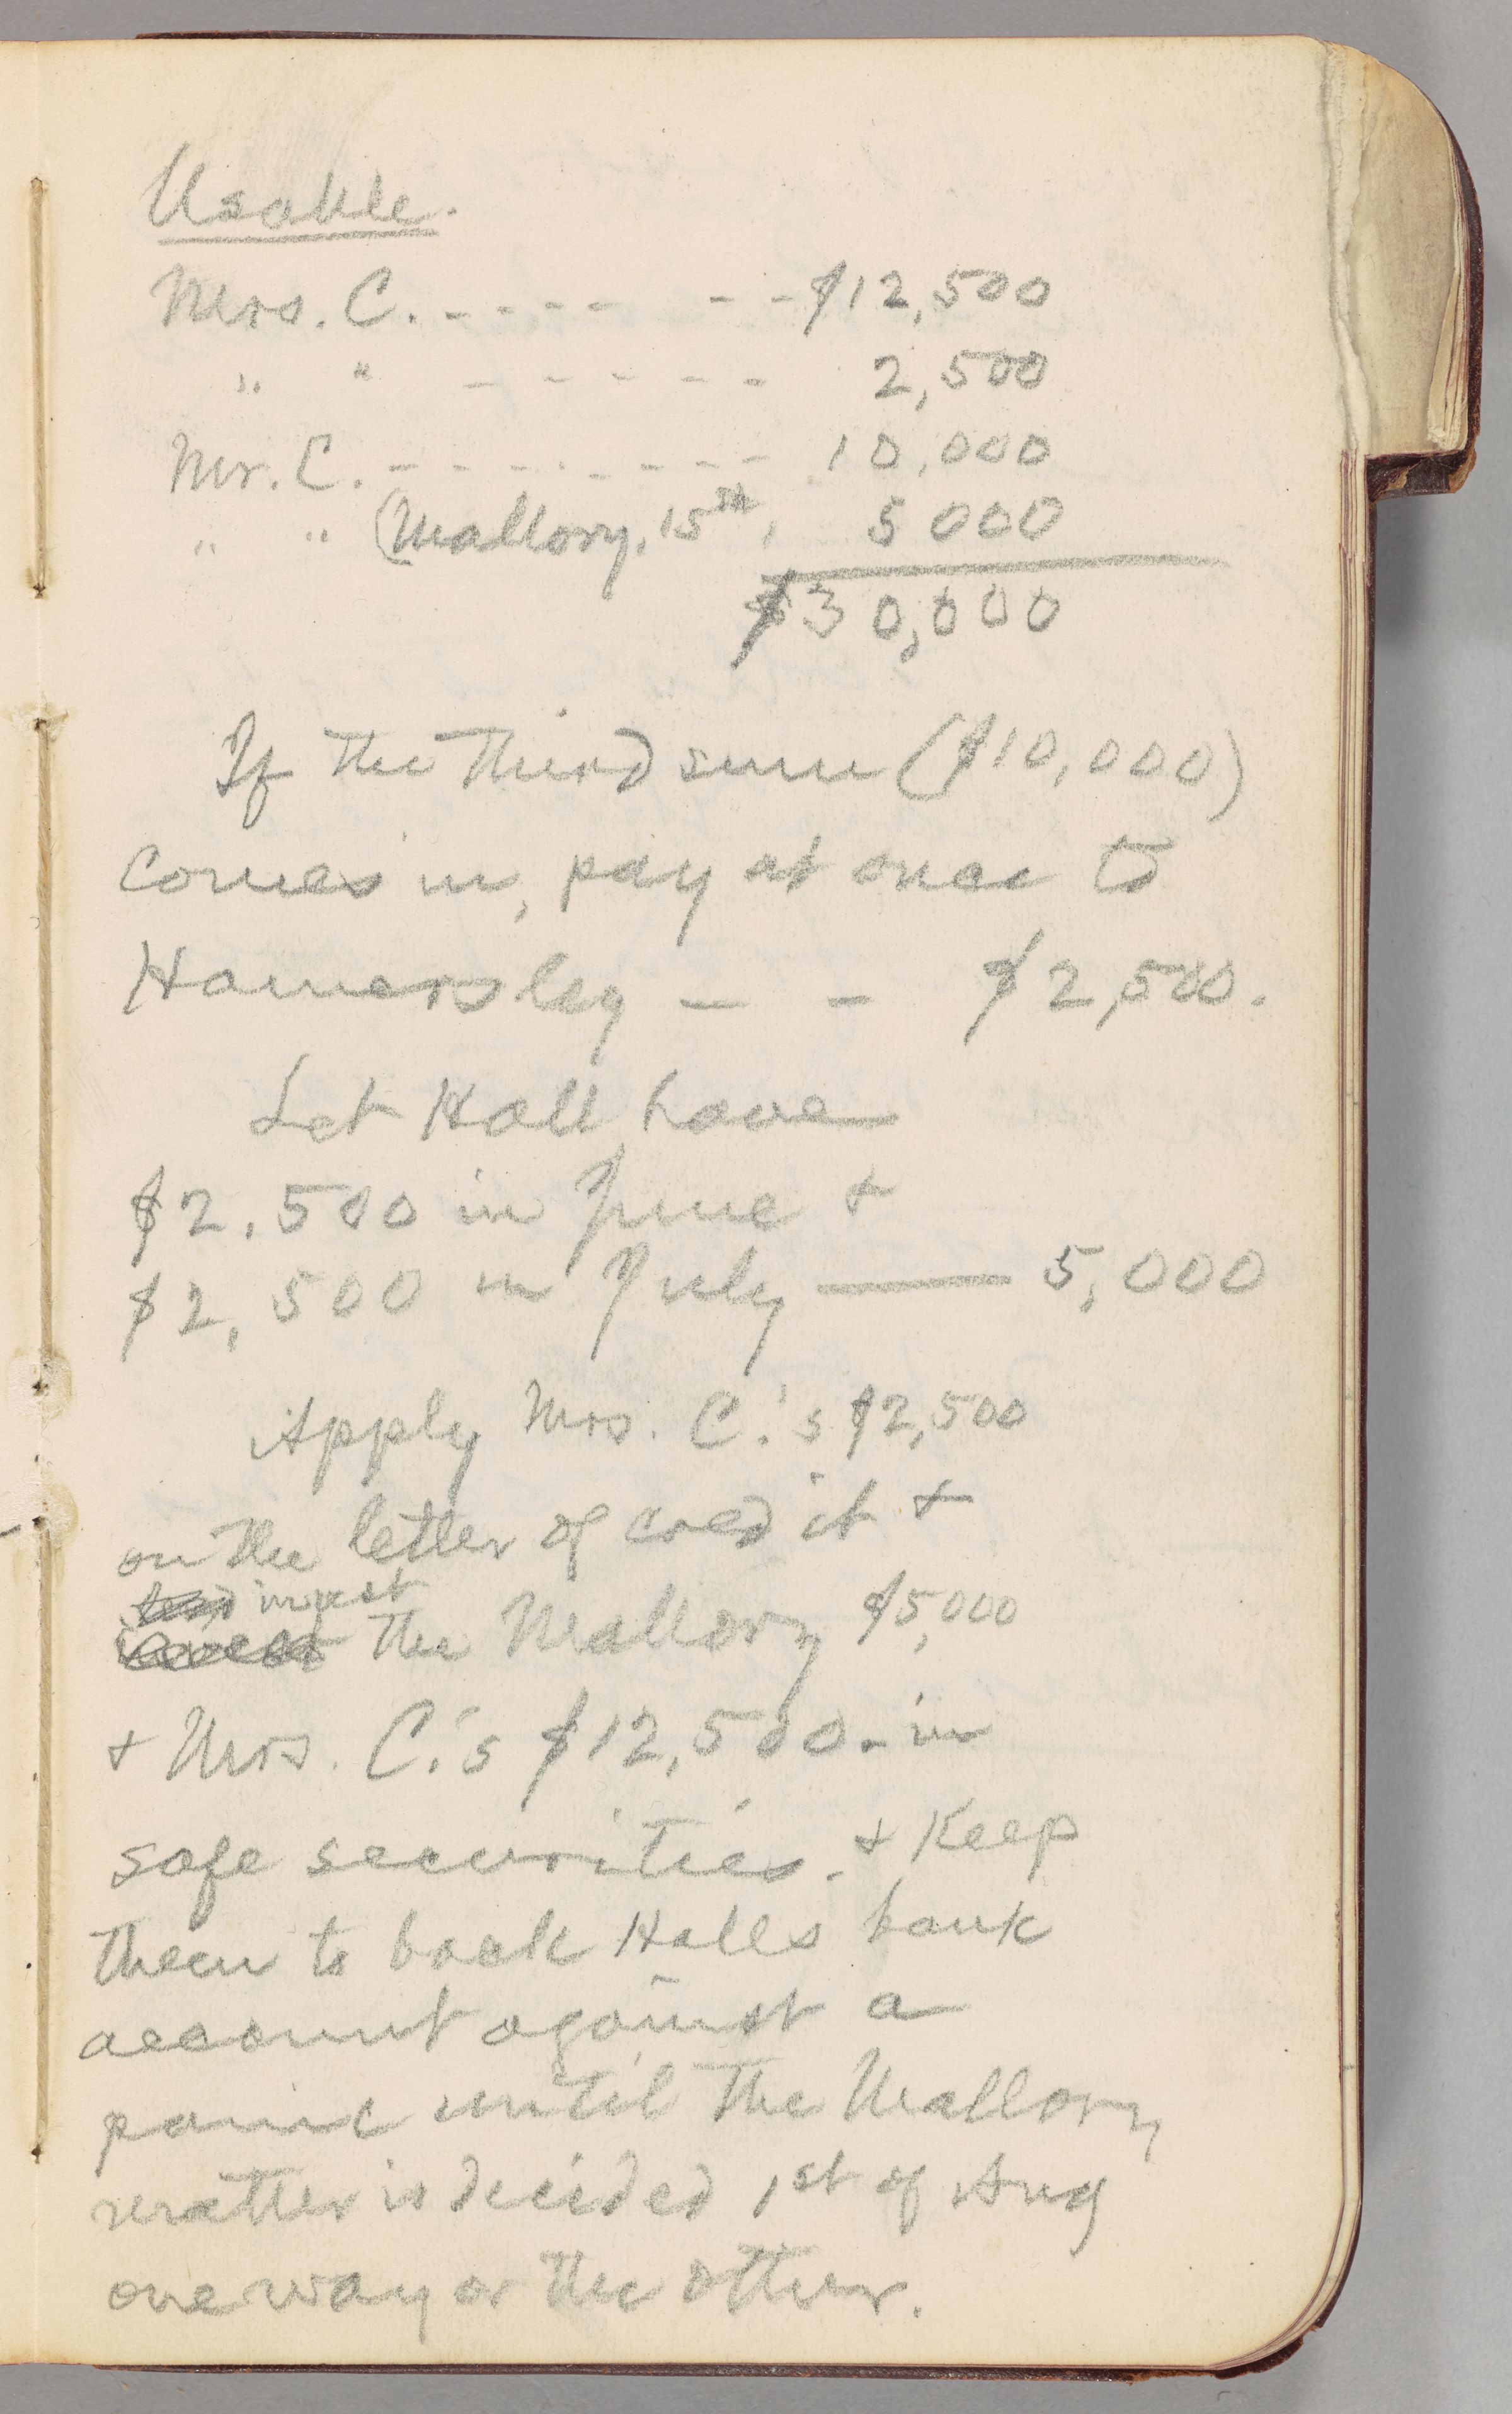 Usable.
Mrs. C. - - - - - - - $12,500
" " - - - - - - 2,500
Mr. C. - - - - - - - - - 10,000
" " (Mallory, 15th, 5000
$30,000
If the third sum ($10,000)
comes in, pay at once to
Hamersley — — $2,500.
Let Hall have
$2,500 in June +
$2,500 in July —— 5,000
Apply Mrs. C.'s $2,500
on the letter of credit +
invest
the Mallory $5,000
+ Mrs. C.'s $12,500. in
safe securities. + Keep
them to back Halls bank
account against a
panic until the Mallory
matter is decided 1st of Aug
one way or the other.